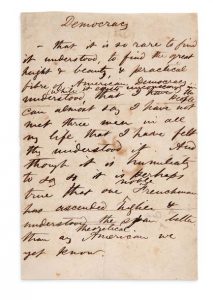 Democracy
— that it is so rare to find
it understood, to find the great
height & beauty, & practical
fibre of American Democracy
understood that I
can almost say I have not
met three men in all
my life that I have felt
understood it And
though it is humiliating
to say so it is perhaps
noble
true that one Frenchman
has ascended higher &
understood the
theoretical
than any American we
yet know.